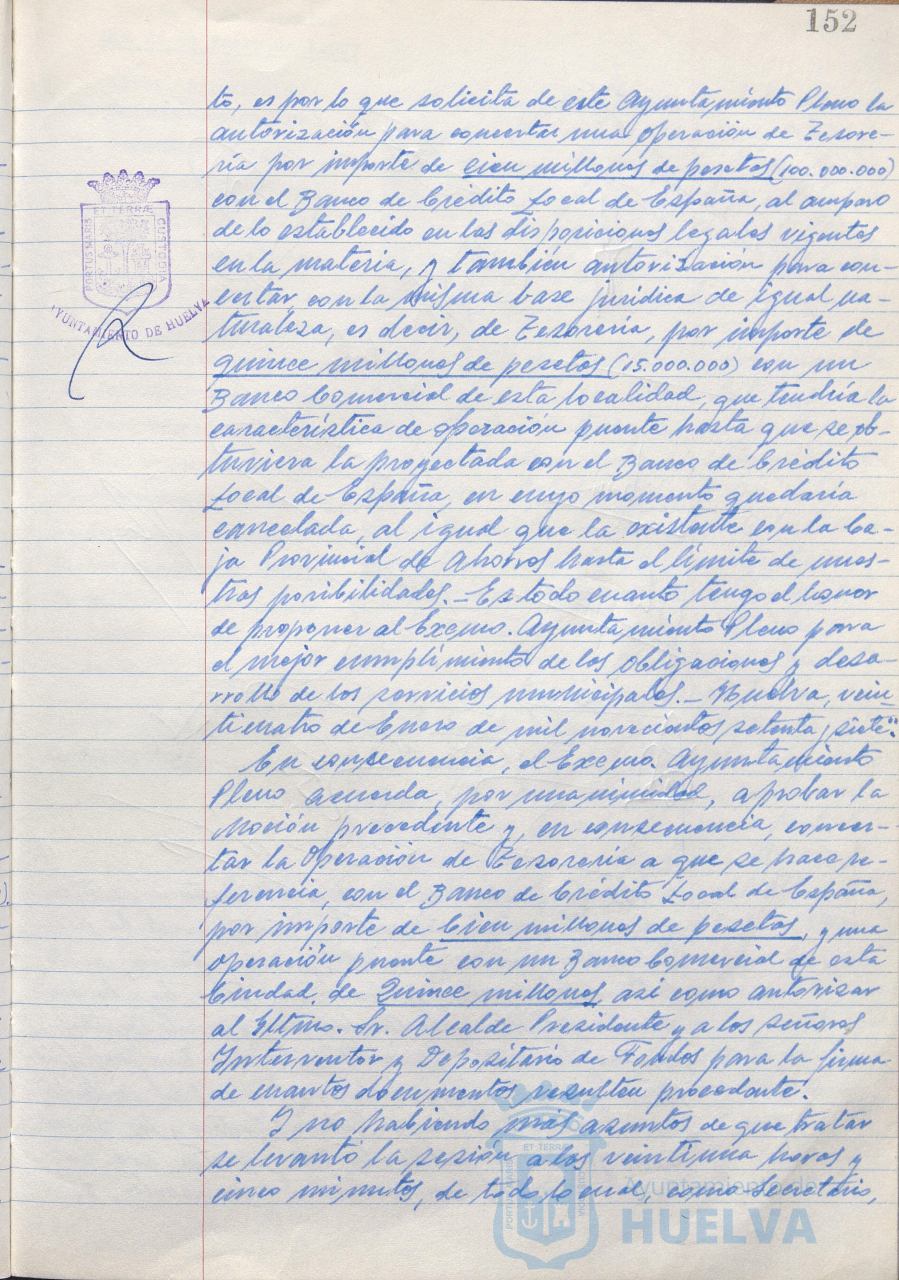 152
to, es por lo que solicita de este Ayuntamiento Pleno la
autorización para concertar una Operación de Tesore-
ría por importe de cien millones de pesetas (100.000.000)
con el Banco de Crédito Local de España, al amparo
de lo establecido en las disposiciones legales vigentes
en la materia, y también autorización para con-
certar con la misma base jurídica de igual na-
turaleza, es decir, de Tesorería, por importe de
quince millones de pesetas (15.000.000) con un
Banco Comercial de esta localidad, que tendría la
característica de operación puente hasta que se ob-
tuviera la proyectada con el Banco de Crédito
Local de España, en cuyo momento quedaría
cancelada, al igual que la existente con la Ca-
ja Provincial de Ahorros hasta el límite de nues-
tras posibilidades.- Es todo cuanto tengo el honor
de proponer al Excmo. Ayuntamiento Pleno para
el mejor cumplimiento de las obligaciones y desa-
rrollo de los servicios municipales.- Huelva, vein-
ticuatro de Enero de mil novecientos setenta y siete".
En consecuencia, el Excmo. Ayuntamiento
Pleno acuerda, por unanimidad, aprobar la
Moción precedente y, en consecuencia, concer-
tar la Operación de Tesorería a que se hace re-
ferencia, con el Banco de Crédito Local de España,
por importe de Cien millones de pesetas, y una
operación puente con un Banco Comercial de esta
Ciudad, de Quince millones, así como autorizar
al Iltmo. Sr. Alcalde Presidente y a los señores
Interventor y Depositario de Fondos para la firma
de cuantos documentos resulten procedente.
Y no habiendo más asuntos de que tratar
se levantó la sesión a las veintiuna horas y
cinco minutos, de todo lo cual, como Secretario,
PORTUS MARIS ET TERRÆ CUSTODIA
AYUNTAMIENTO DE HUELVA
PORTUS MARIS ET TERRÆ CUSTODIA
Ayuntamiento de
HUELVA